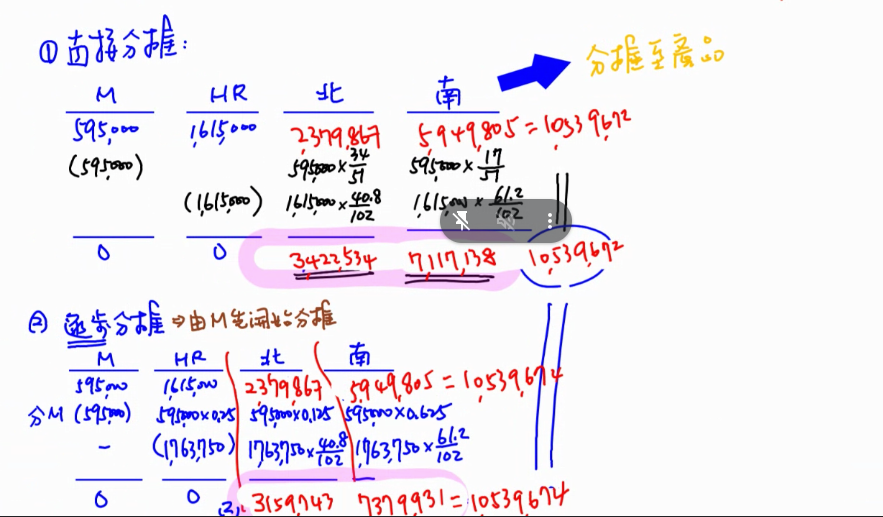 ① 直接分摊:
分摊至產品
M HR 北 南
595,000 1,615,000 2,379,867 5,949,805 = 10,539,672
(595,000) 595,000 × 34/51 595,000 × 17/51
(1,615,000) 1,615,000 × 40.8/102 1,615,000 × 61.2/102
0 0 3,422,534 7,117,138 10,539,672
② 逐步分摊 → 由M先開始分摊
M HR 北 南
595,000 1,615,000 2379,867 5,949,805 = 10,539,674
分M (595,000) 595,000×0.25 595,000×0.125 595,000×0.625
- (1,763,750) 1,763,750 × 40.8/102 1,763,750 × 61.2/102
0 0 3159,743 7379,931 = 10,539,674